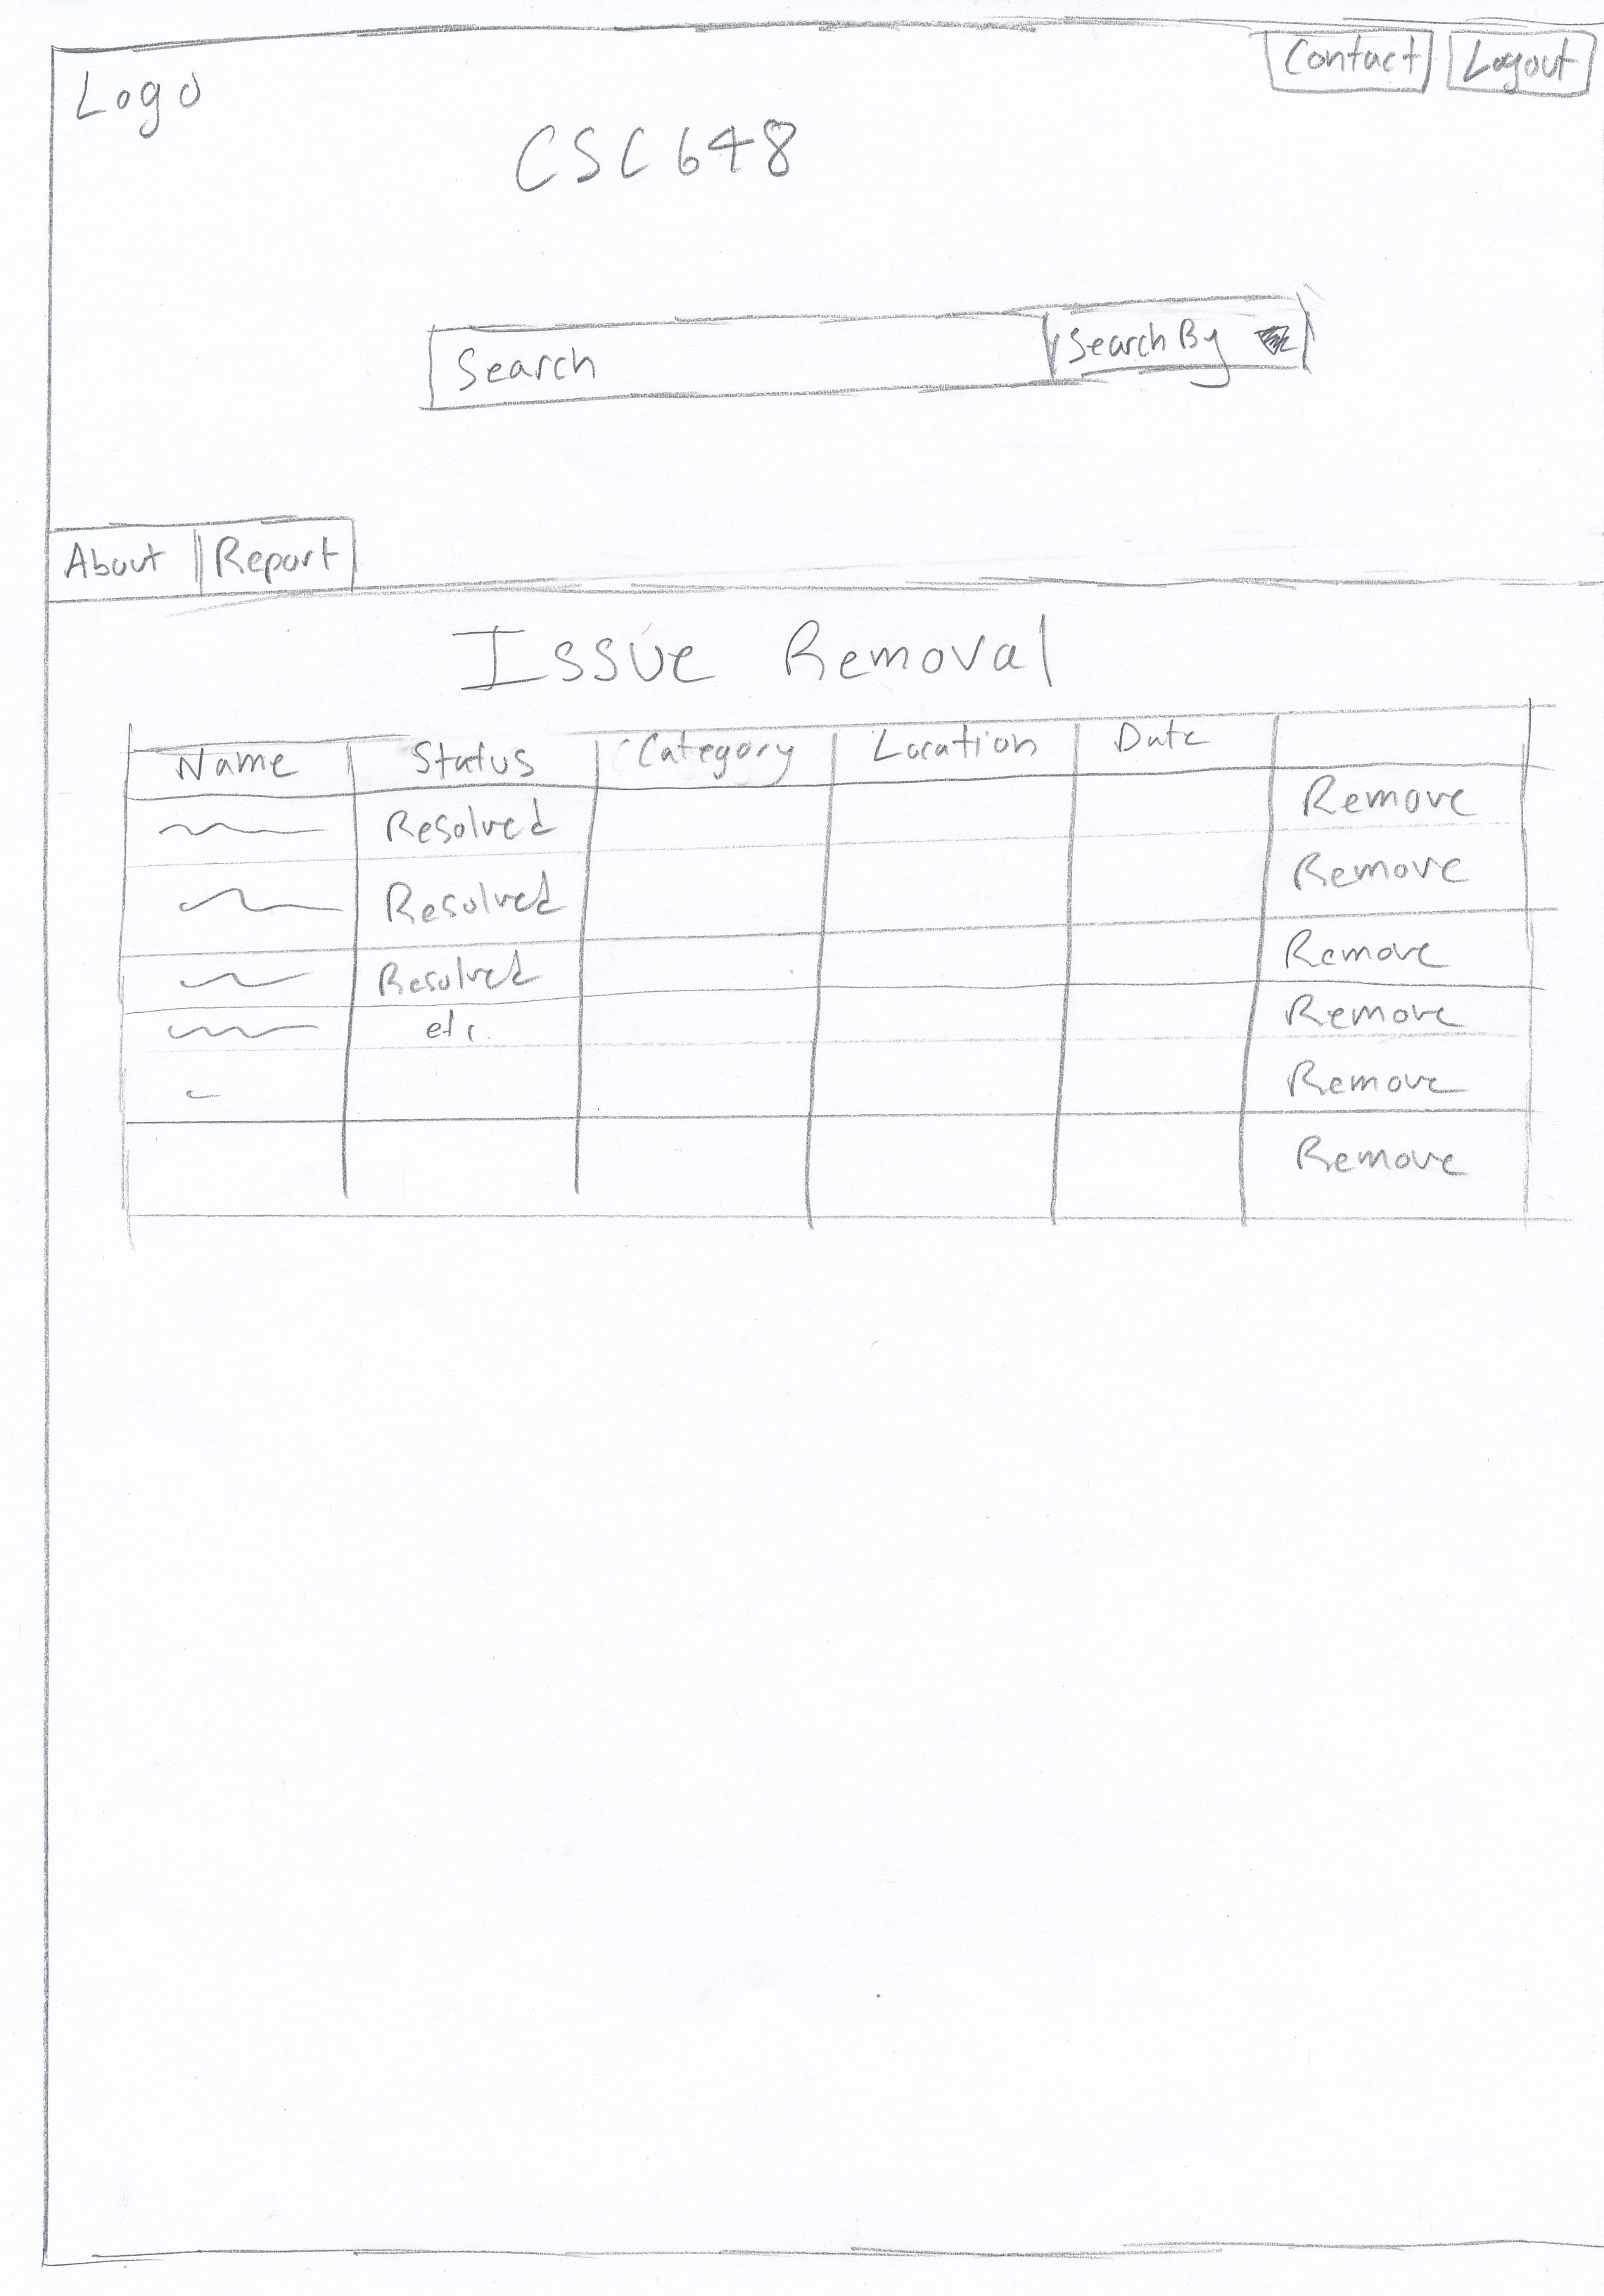 Logo
Contact Logout
CSC 648
Search Search By
About Report
Issue Removal
Name Status Category Location Date
Resolved Remove
Resolved Remove
Resolved Remove
etc. Remove
Remove
Remove